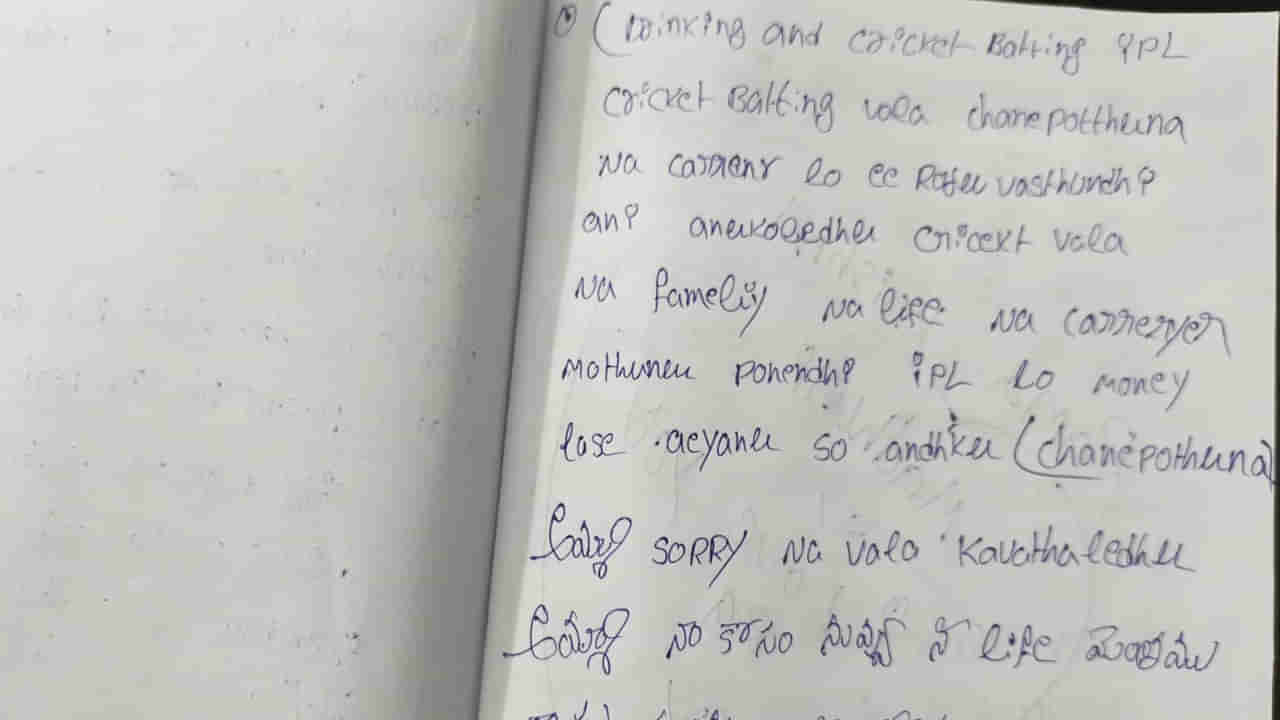 (Drinking and cricket Batting IPL
cricket Batting vala chanepotthuna
Na caraenr lo ee Rojeu vasthundhi
ani aneukoledheu cricekt vala
Na fameliy Na life Na carreryer
mothuneu ponendhi IPL lo money
lose aeyaneu so andhkeu (chanepothuna)
అమ్మ SORRY Na vala kavathaledheu
అమ్మ నా కోసం నువ్వు నీ life మొత్తము